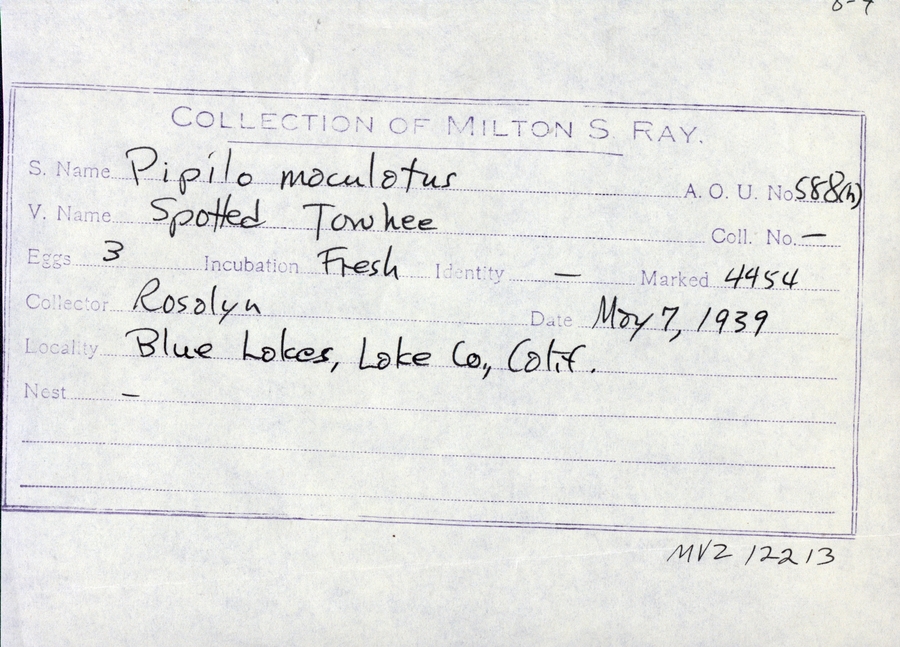 COLLECTION OF MILTON S. RAY.
S. Name Pipilo maculatus A. O. U. No. 588(h)
V. Name Spotted Towhee Coll. No. —
Eggs 3 Incubation Fresh Identity — Marked 4454
Collector Rosalyn Date May 7, 1939
Locality Blue Lakes, Lake Co., Calif.
Nest —
MVZ 12213